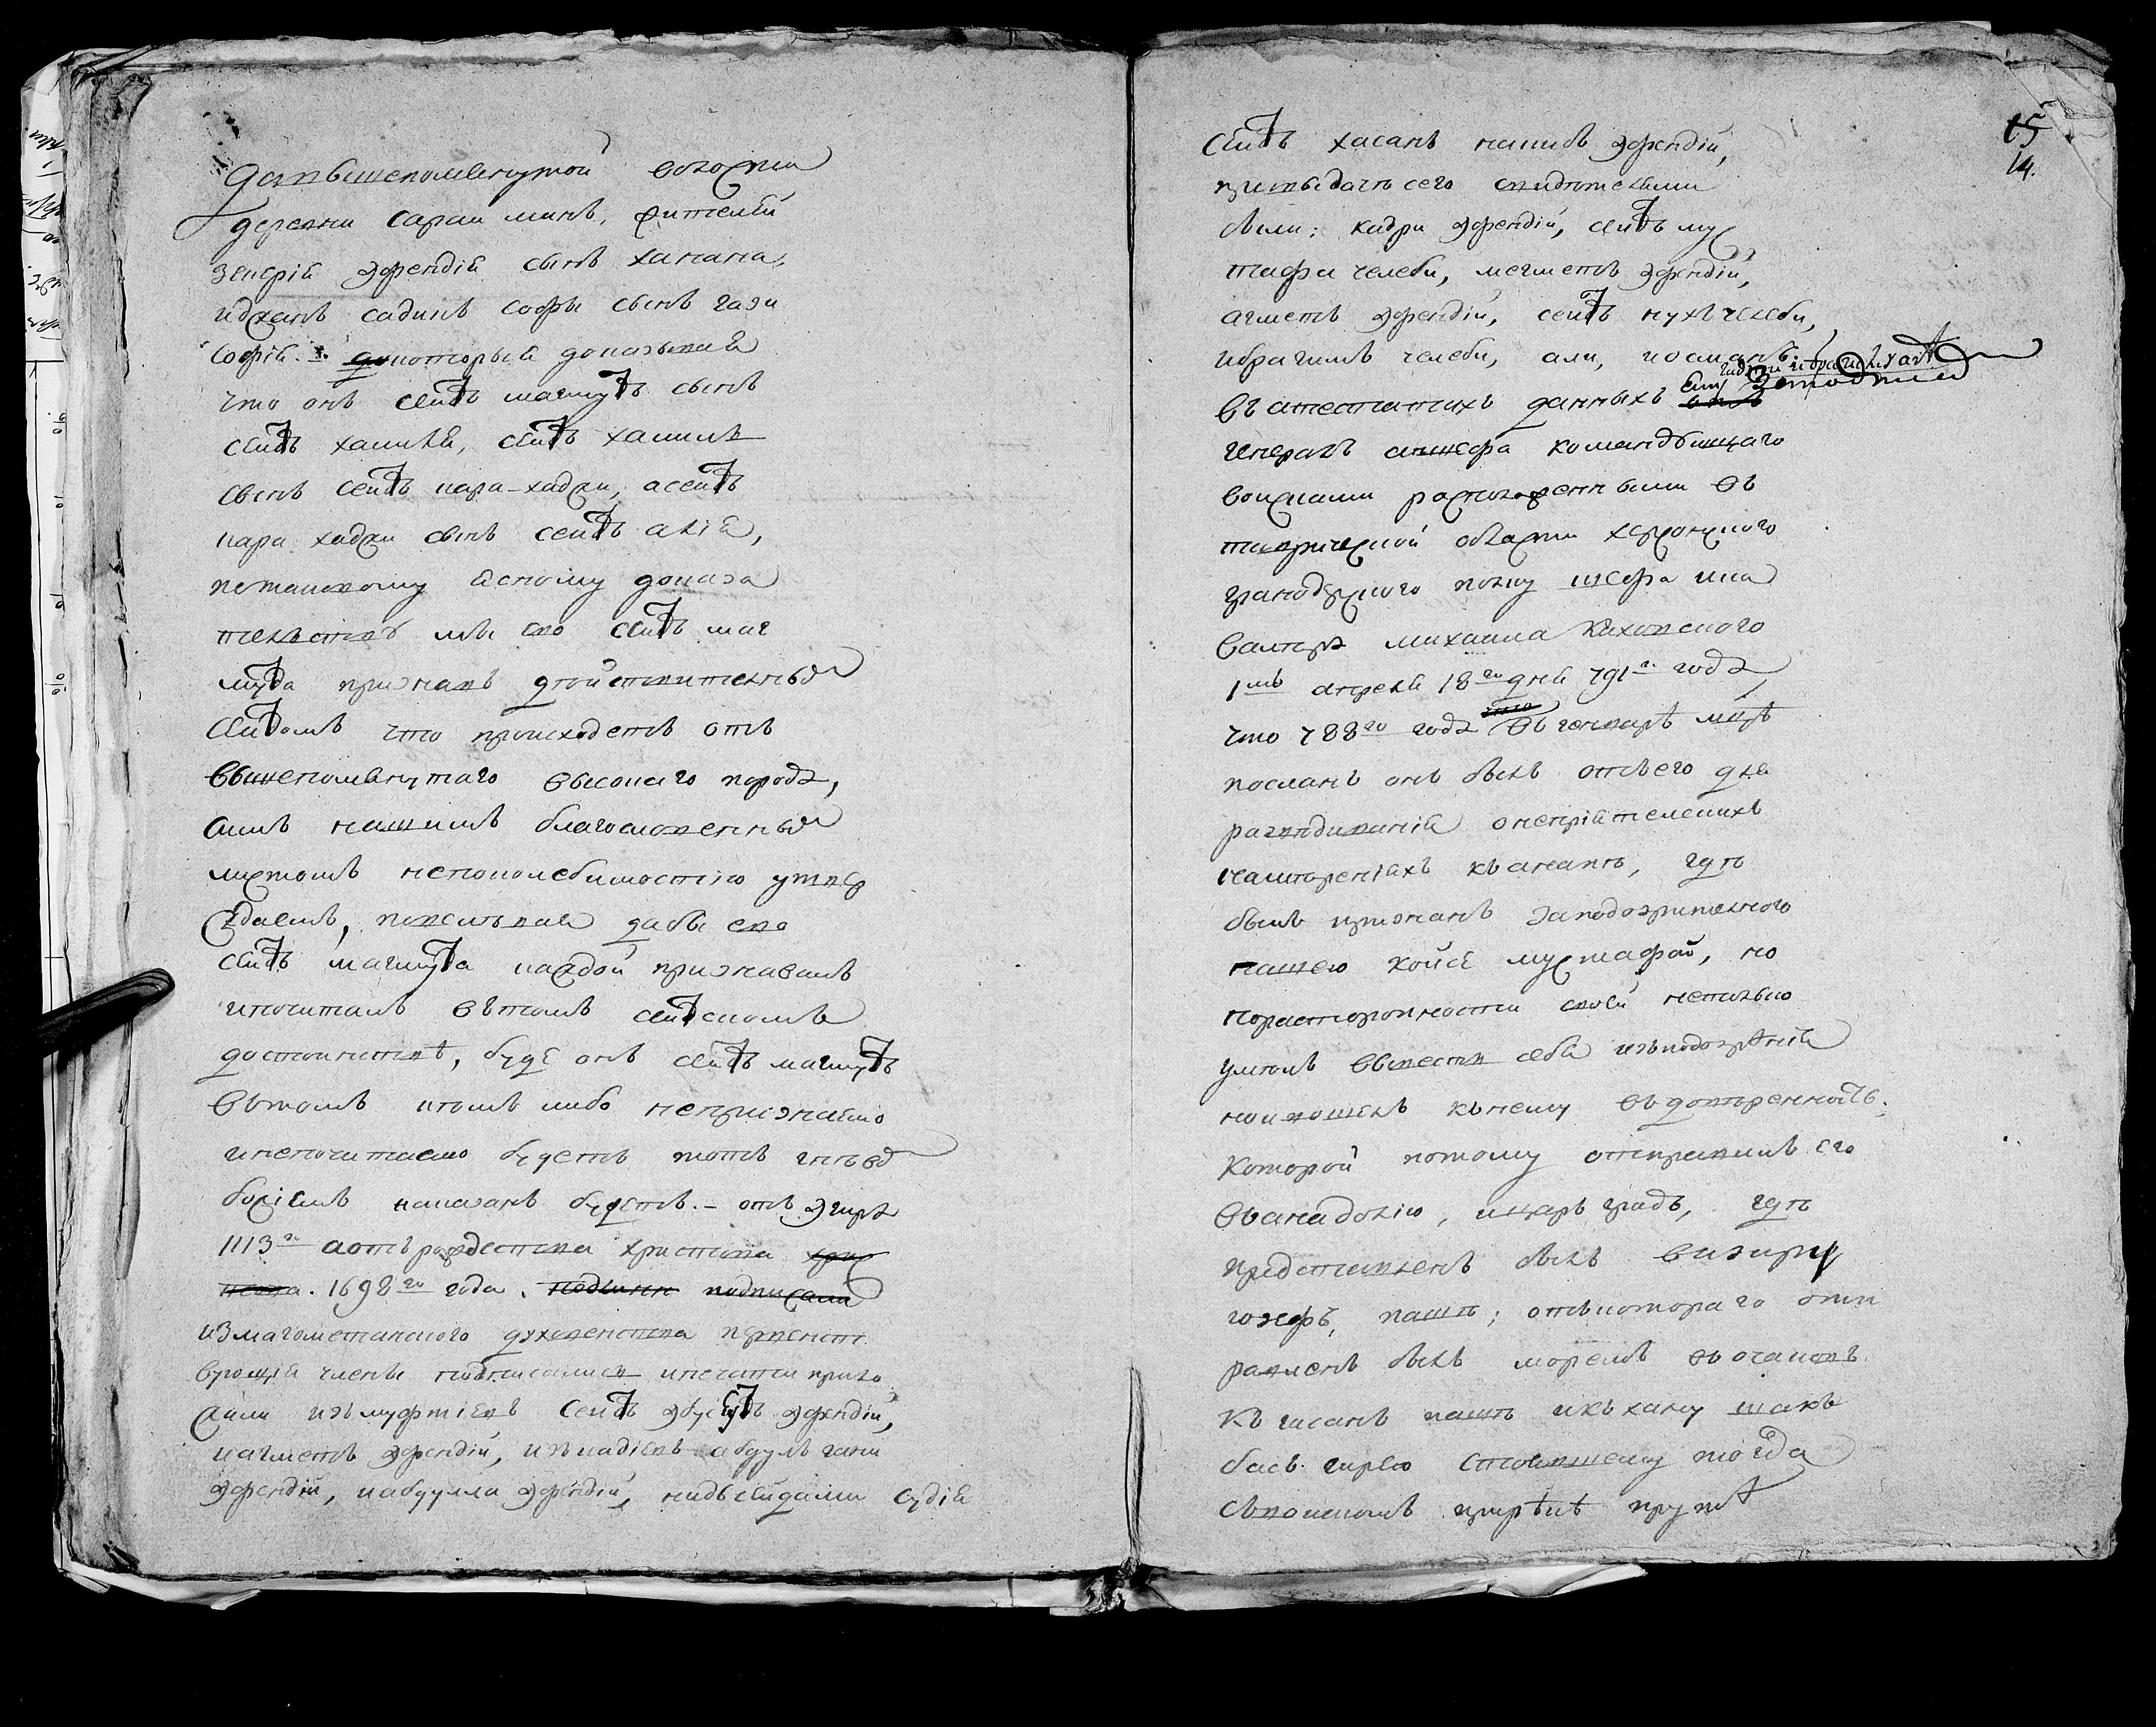 Давышепомянутой волости
деревни сараи минъ, жители
зекерій эфендій сынъ ханана,
иджанъ садикъ софы сынъ гази
софій. который доказывая
что онъ сеитъ магмутъ сынъ
сеитъ халиля, сеитъ халилъ
сынъ сеитъ кара-хаджи, асеитъ
кара хаджи сынъ сеитъ алія,
потаковому ясному доказа
телству мы его сеитъ маг
мута признавъ действительны
сеитомъ что происходетъ отъ
вышепомянутаго высокаго порода,
симъ нашимъ благосклоннны
листомъ непоколебимостію утвер
ждаемъ, повелевая дабы его
сеитъ магмута каждой признавалъ
ипочиталъ вътомъ сеитскомъ
достоинстве, буде онъ сеитъ магмутъ
вътомъ кемъ либо непризнаемо
инепочитаемо будетъ тотъ гневъ
божіемъ наказанъ будетъ. - отъ эгиры
1113го аотъ рождества христова
1698го года. подписали
измагометанского духовенства первенст
вующія члены подписались ипечати прило
жили изъмуфтіевъ сеитъ эбусутъ эфендій,
иагметъ эфендій, изъкадіевъ абдулъ гани
эфендій, иабдулла эфендій, надъсеидами судія
15
14.
сеитъ хасанъ накибъ эфендій,
привыдаче сего свидетелями
были: кадри эфендій, сеитъ мус
тафа челеби, мегметъ эфендій,
агметъ эфендій, сеитъ нухъ челеби,
ибрагимъ челеби, али, иосманъ.
Ватестатихъ данныхъ ему
генералъ аншефа командующаго
воисками расположенными въ
таврической области херсонского
гранодерского полку шефа ика
валера михаила Каховского
1мъ апреля 18го дня 791го года
что 788го года въ генваре мце
посланъ онъ былъ отъ его для
разведиваній о непріятелскихъ
намереніяхъ къ анапе, где
былъ признанъ заподозрителного
пашею хойсе мустафой, но
порасторопности своей непольно
умелъ вывести себя изъподозренія
ноивошелъ кънему въдоверенность;
которой потому отправилъ его
въанадолію, ицарь градъ, где
представленъ былъ визирю
юзефъ, паше; отъкотораго отп
равленъ былъ моремъ въ очаковъ
къ гасанъ паше икъ хану шакъ
басъ гирею стоявшему тогда
съвоискомъ приреке пруте